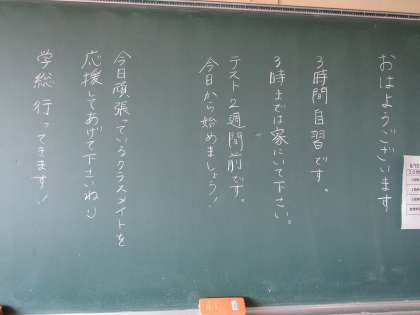 おはようございます
3時間自習です。
3時までは家にいて下さい。
テスト2週間前です。
今日から始めましょう!
今日頑張っているクラスメイトを
応援してあげて下さいね:)
学総行ってきます!